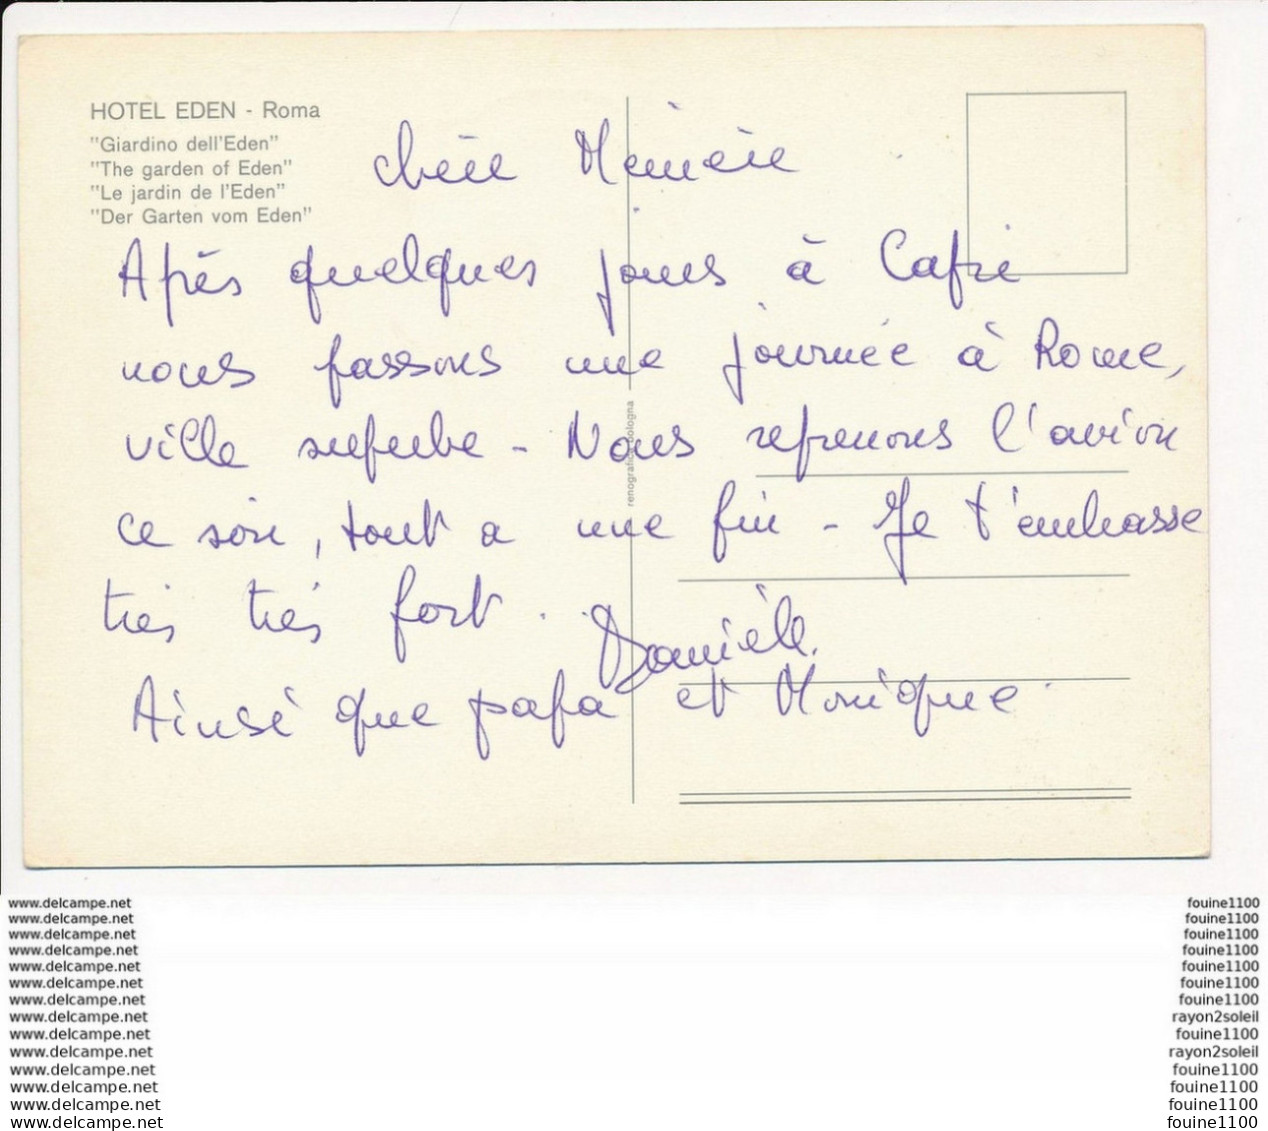 HOTEL EDEN - Roma
"Giardino dell'Eden"
"The garden of Eden"
"Le jardin de l'Eden"
"Der Garten vom Eden"
chère Mémère
Après quelques jours à Capri
nous passons une journée à Rome,
ville superbe - Nous reprenons l'avion
ce soir, tout a une fin - Je t'embrasse
très très fort. Danièle.
Ainsi que papa et Monique.
renografica bologna
www.delcampe.net fouine1100
www.delcampe.net fouine1100
www.delcampe.net fouine1100
www.delcampe.net fouine1100
www.delcampe.net fouine1100
www.delcampe.net fouine1100
www.delcampe.net fouine1100
www.delcampe.net rayon2soleil
www.delcampe.net fouine1100
www.delcampe.net rayon2soleil
www.delcampe.net fouine1100
www.delcampe.net fouine1100
www.delcampe.net fouine1100
www.delcampe.net fouine1100